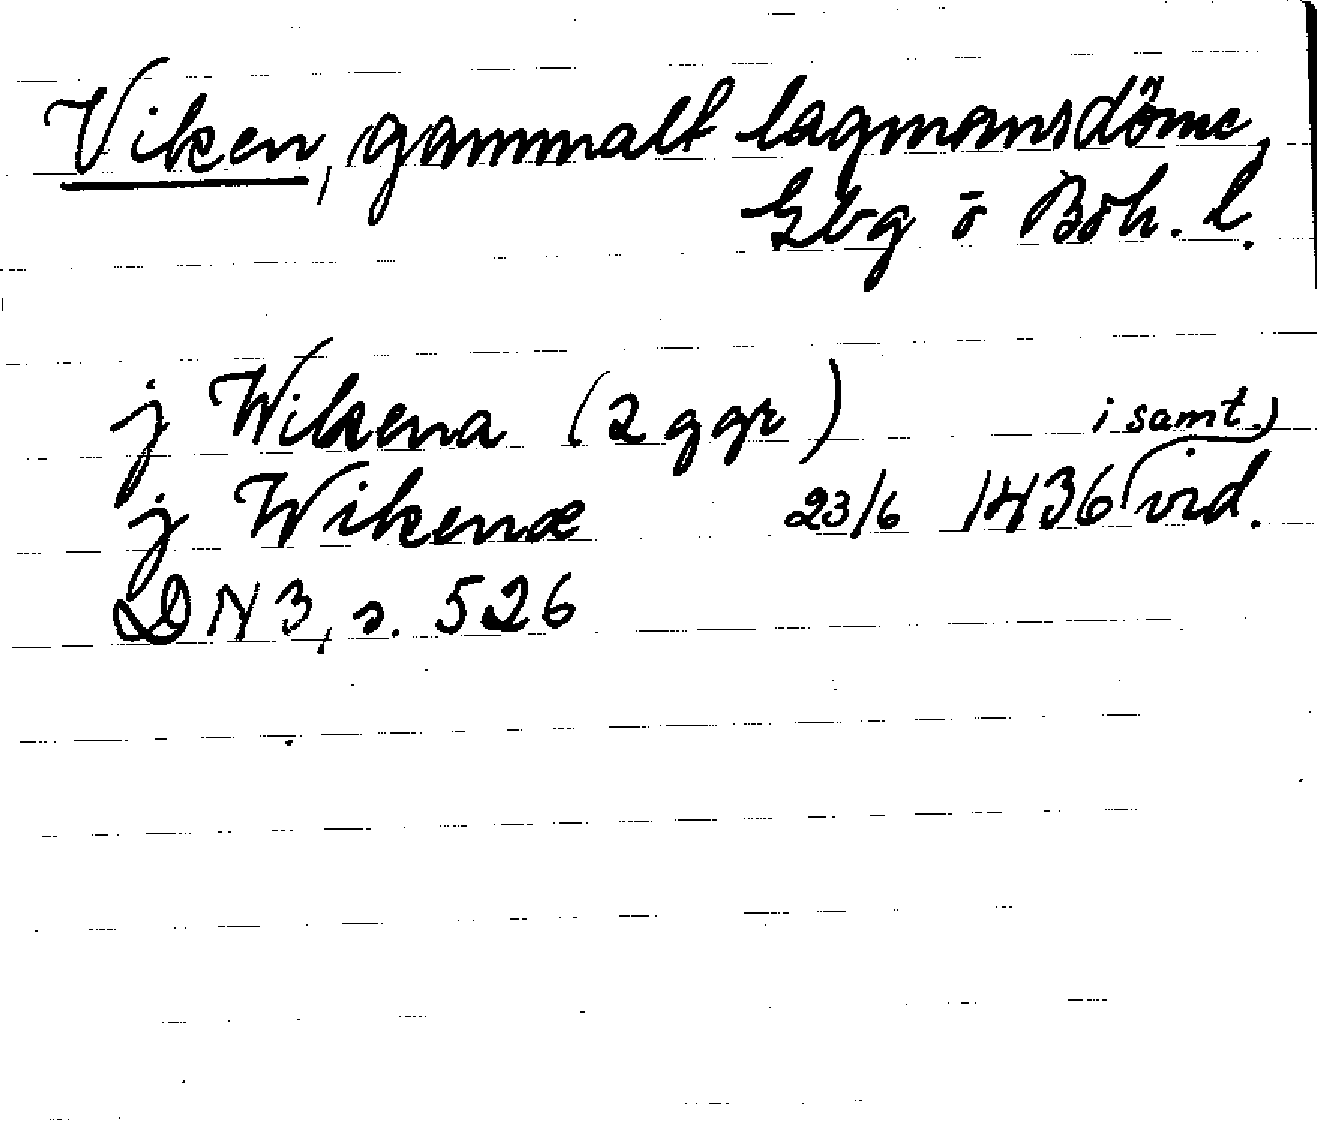 Viken, gammalt lagmansdöme,
Gbg o Boh. l.
j Wikena (2 ggr)
i samt.
j Wikenæ 23/6 1436 vid.
DN 3, s. 526